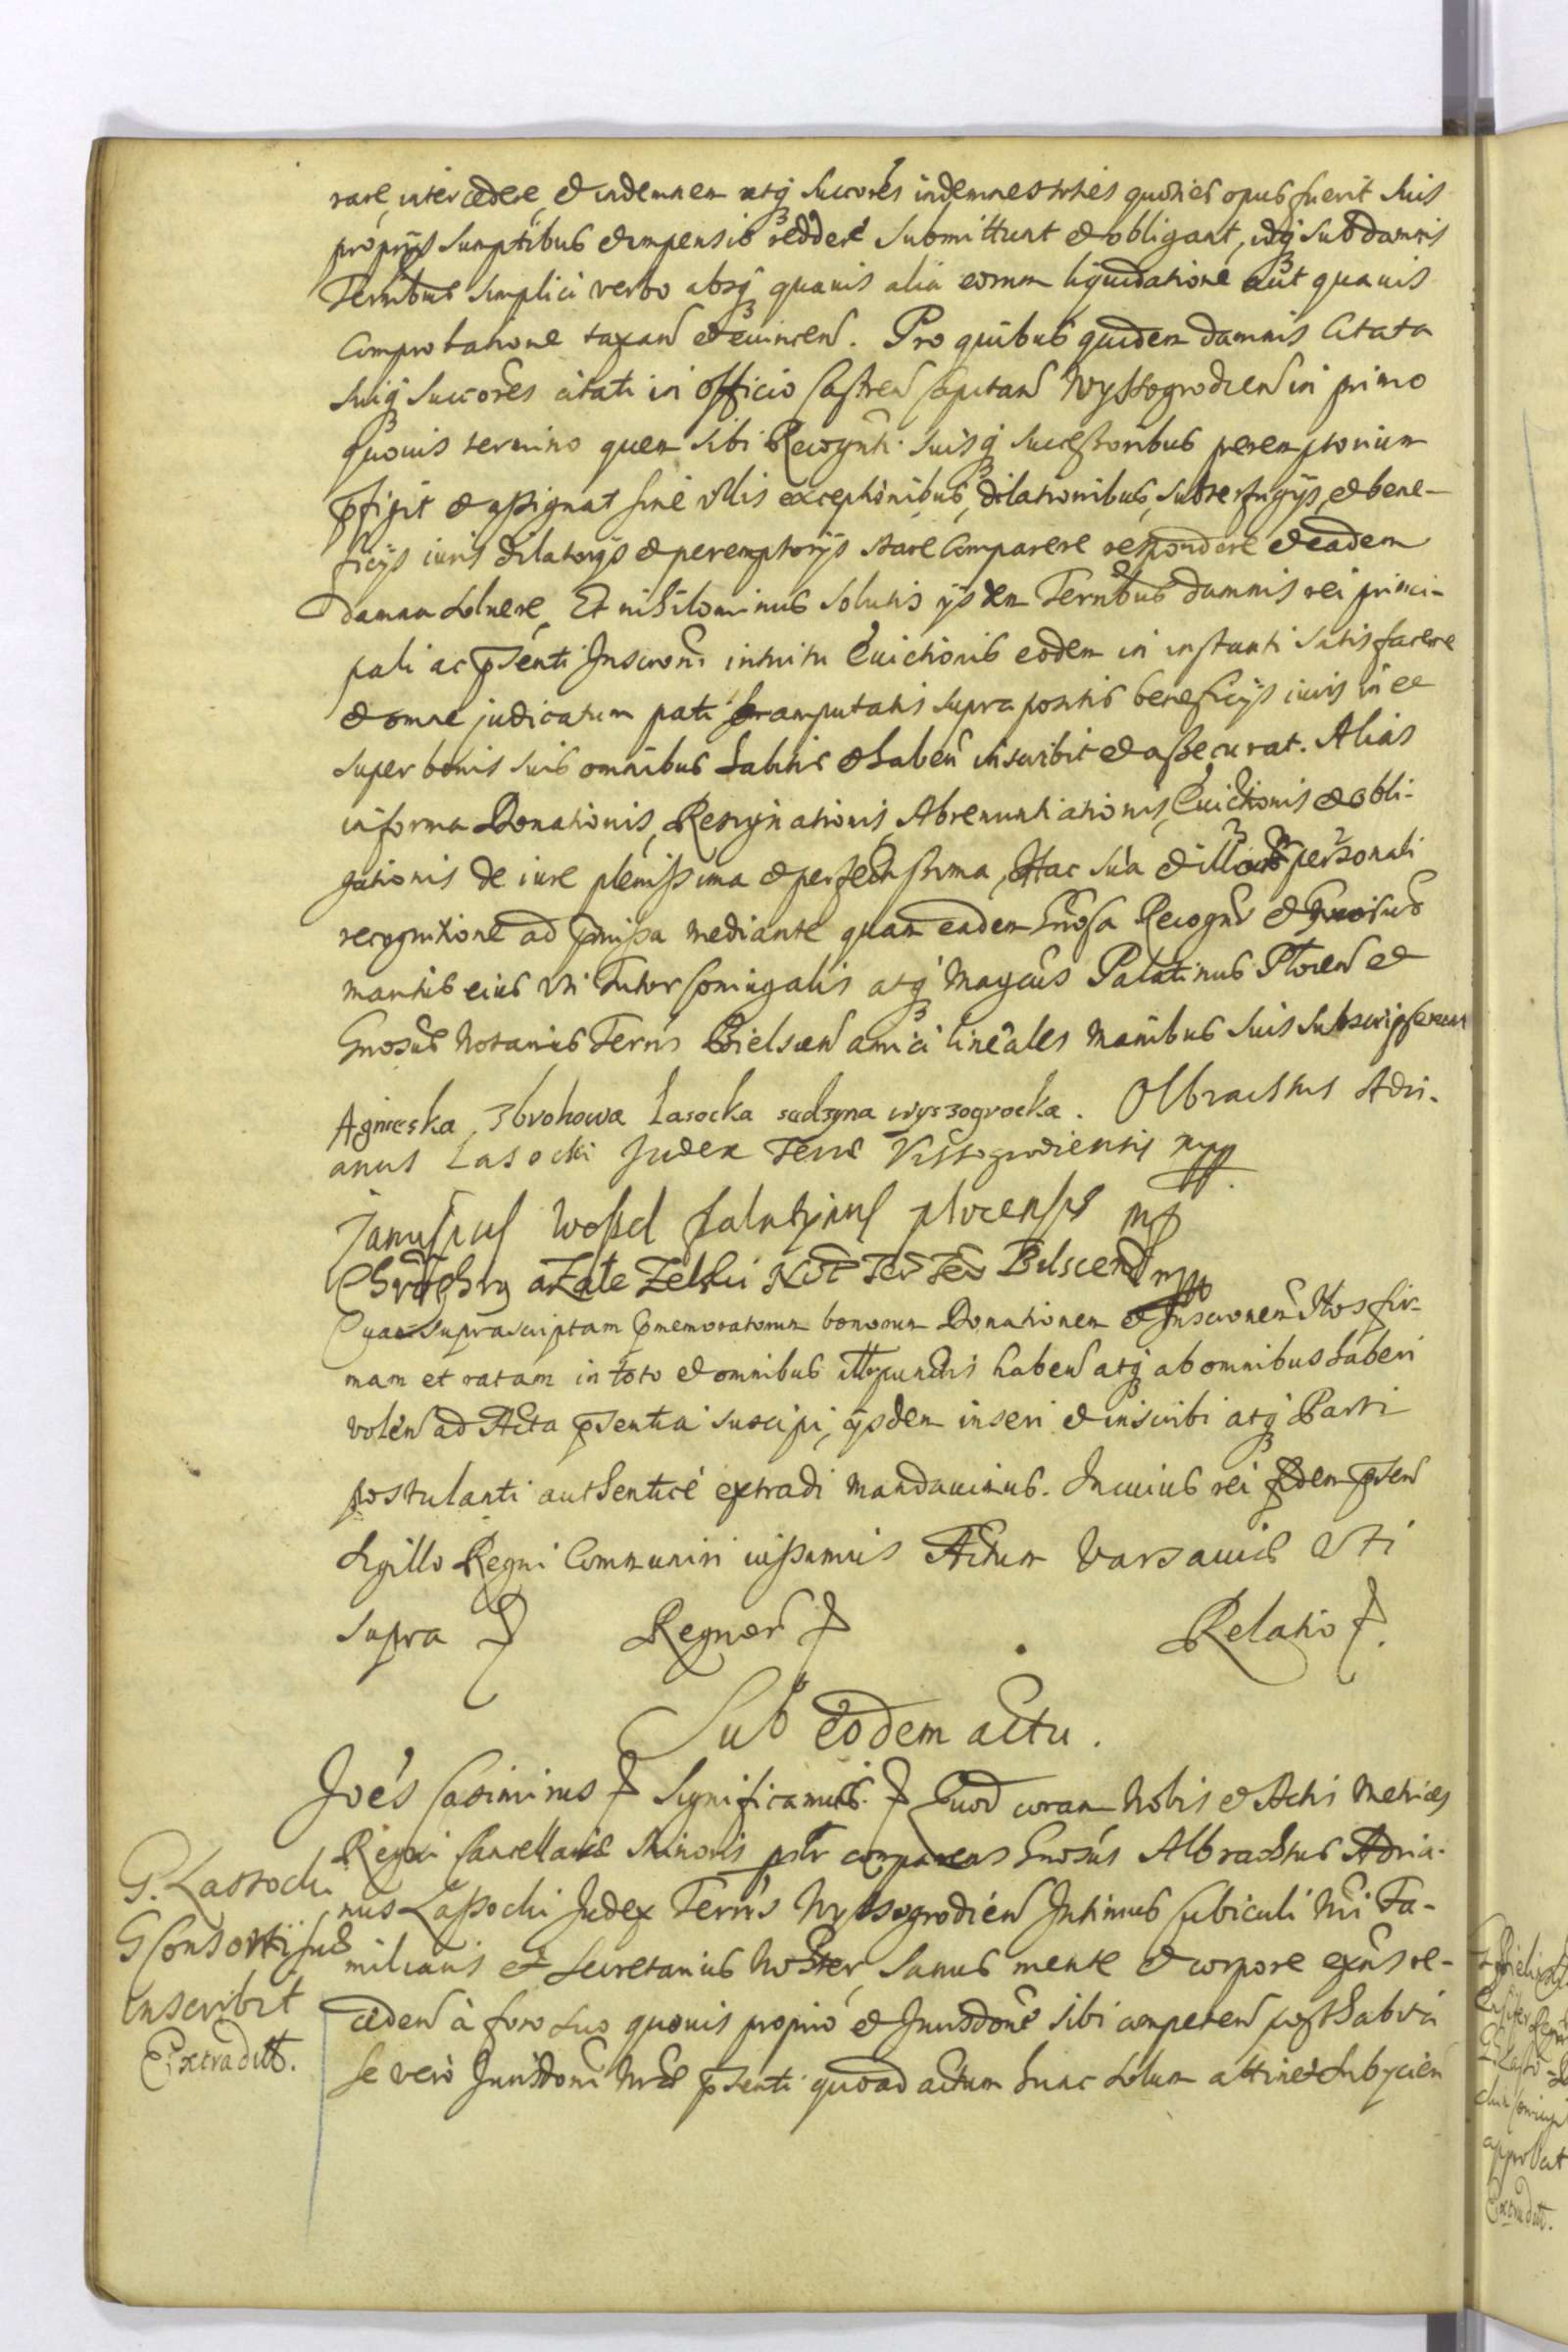 rare, intercedere, et indemnem atq succores indemnes toties quoties opus fuerit suis
proprys sumptibus et impensis reddere submittunt et obligant, idq sub damnis
Terribus simplici verbo absq quavis alia eorum liquidatione aut quavis
comprobatione taxan et evincen. Pro quibus quidem damnis Citata
suiq succores citati in Officio Castren Capitan Wyssogrodien in primo
quovis termino quem sibi Recognti suisq successoribus peremptorium
pfigit et assignat sine ullis exceptionibus, dilationibus, subterfugys, et bene-
ficys iuris dilatorys et peremptorys stare comparere respondere et eadem
damna solvere, Et nihilominus solutis ysdem Terribus damnis rei princi-
pali ac psenti Inscroni intuitu Evictionis eodem in instanti satisfacere
et omne judicatum pati amputatis supra positis beneficys iuris in et
super bonis suis omnibus habitis et haben inscribit et assecurat. Alias
in forma Donationis, Resignationis, Abrenuntiationis, Evictionis et obli-
gationis de iure plenissima et perfectissima, Hac sua et personali
recognitione ad pmissa mediante quam eadem Gnosa Recogns et Gnosus
maritus eius uti Tutor Coniugalis atq Magcus Palatinus Plocen et
Gnosus Notarius Terris Bielscen amici lineales manibus suis subscripserunt
Agnieska Zbrohowa Lasocka sedzyna wyszogrocka. Olbrachtus Adri-
anus Lasocki Judex Terre Vissogrodiensis mpp
Janussius Wessel palatynus plocensis mp
a Zale Zelski Not Ter Bilscen mpp
Quam suprascriptam pmemoratorum bonorum Donationem et Inscronem Nos fir-
mam et ratam in toto et omnibus punctis haben atq ab omnibus haberi
volen ad Acta psentia suscipi, ysdem inseri et inscribi atq Parti
postulanti authentice extradi mandavimus. In cuius rei fidem psen
sigillo Regni Communiri iussimus Actum Varsavie uti
supra Regnor Relatio
Sub eodem actu.
Joes Casimirus Significamus. Quod coram Nobis et Actis Metrices
Regni Cancellarie Minoris psltr comparens Gnosus Albrachtus Adria-
nus Lassocki Judex Terris Wyssogrodien Intimus Cubiculi Nri Fa-
miliaris et Secretarius Noster, sanus mente et corpore exns re-
ceden à foro suo quovis proprio et Jurisdone sibi competen posthabita
se vero Jurisdoni Nre psenti quoad actum hunc solum attinet subycien
G. Lassocki
G Consorti sue
inscribit
Extradit.
approbat
Extradit.